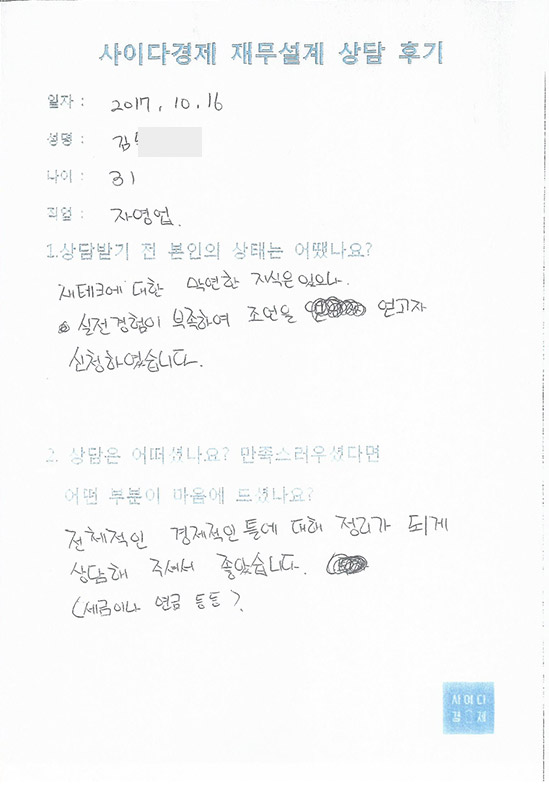 사이다경제 재무설계 상담 후기
일자 : 2017. 10. 16
성명 : 김
나이 : 31
직업 : 자영업.
1.상담받기 전 본인의 상태는 어땠나요?
재테크에 대한 막연한 지식은 있으나
실전경험이 부족하여 조언을 얻고자
신청하였습니다.
2. 상담은 어떠셨나요? 만족스러우셨다면
어떤 부분이 마음에 드셨나요?
전체적인 경제적인 틀에 대해 정리가 되게
상담해 주셔서 좋았습니다.
(세금이나 연금 등등).
사이다
경제